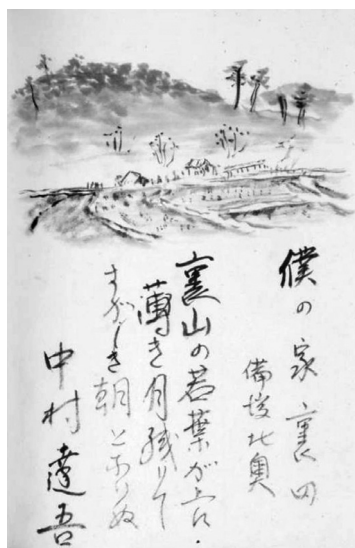 僕の家 裏
備後北奥
裏山の若葉が上に
薄き月残りて
すがしき朝となりぬ
中村達吾